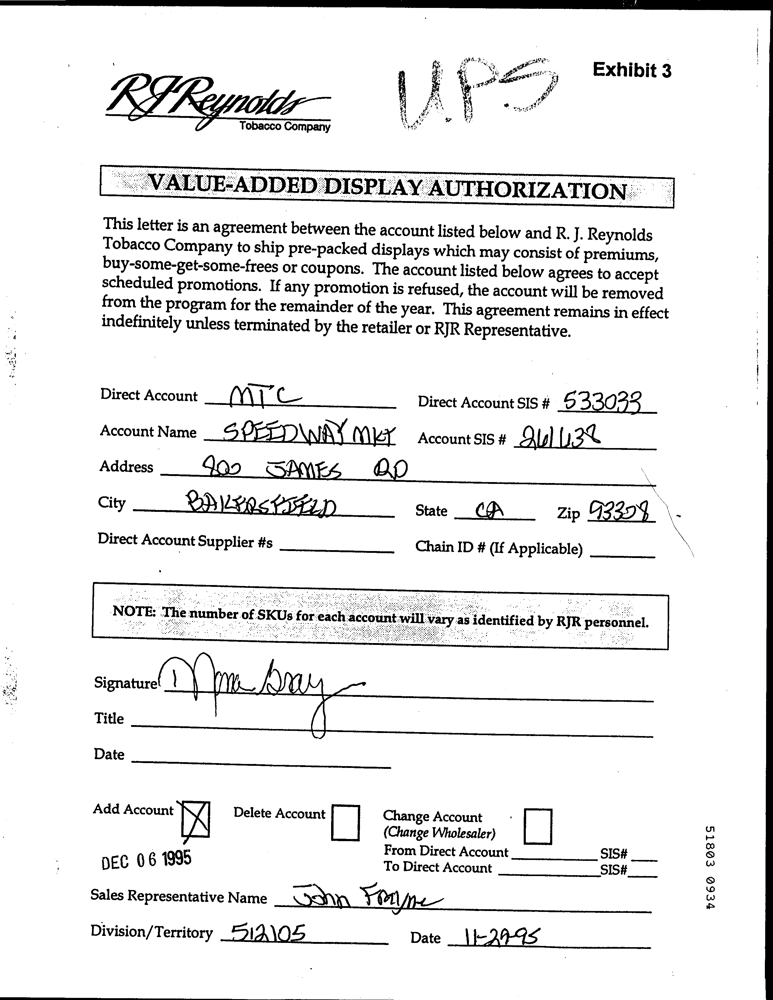 Exhibit 3
U.P.S
RJReynolds
Tobacco Company
VALUE-ADDED DISPLAY AUTHORIZATION
This letter is an agreement between the account listed below and R. J. Reynolds
Tobacco Company to ship pre-packed displays which may consist of premiums,
buy-some-get-some-frees or coupons. The account listed below agrees to accept
scheduled promotions. If any promotion is refused, the account will be removed
from the program for the remainder of the year. This agreement remains in effect
indefinitely unless terminated by the retailer or RJR Representative.
Direct Account MTC Direct Account SIS # 533033
Account Name SPEEDWAY MKT Account SIS #
Address 900 JAMES RD
City BAKERSFIELD State CA Zip 93308
Direct Account Supplier #s Chain ID # (If Applicable)
NOTE: The number of SKUs for each account will vary as identified by RJR personnel.
Signature
Title
Date
Add Account Delete Account Change Account
(Change Wholesaler)
From Direct Account SIS#
To Direct Account SIS#
DEC 06 1995
Sales Representative Name John
Division/Territory 512105 Date
51803 0934